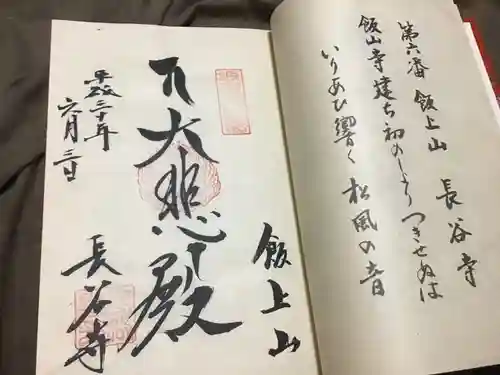 第六番 飯上山 長谷寺
飯山寺建ち初めしより つきせぬは
いりあひ響く 松風の音
飯上山
大悲殿
平成三十年
六月三日
長谷寺